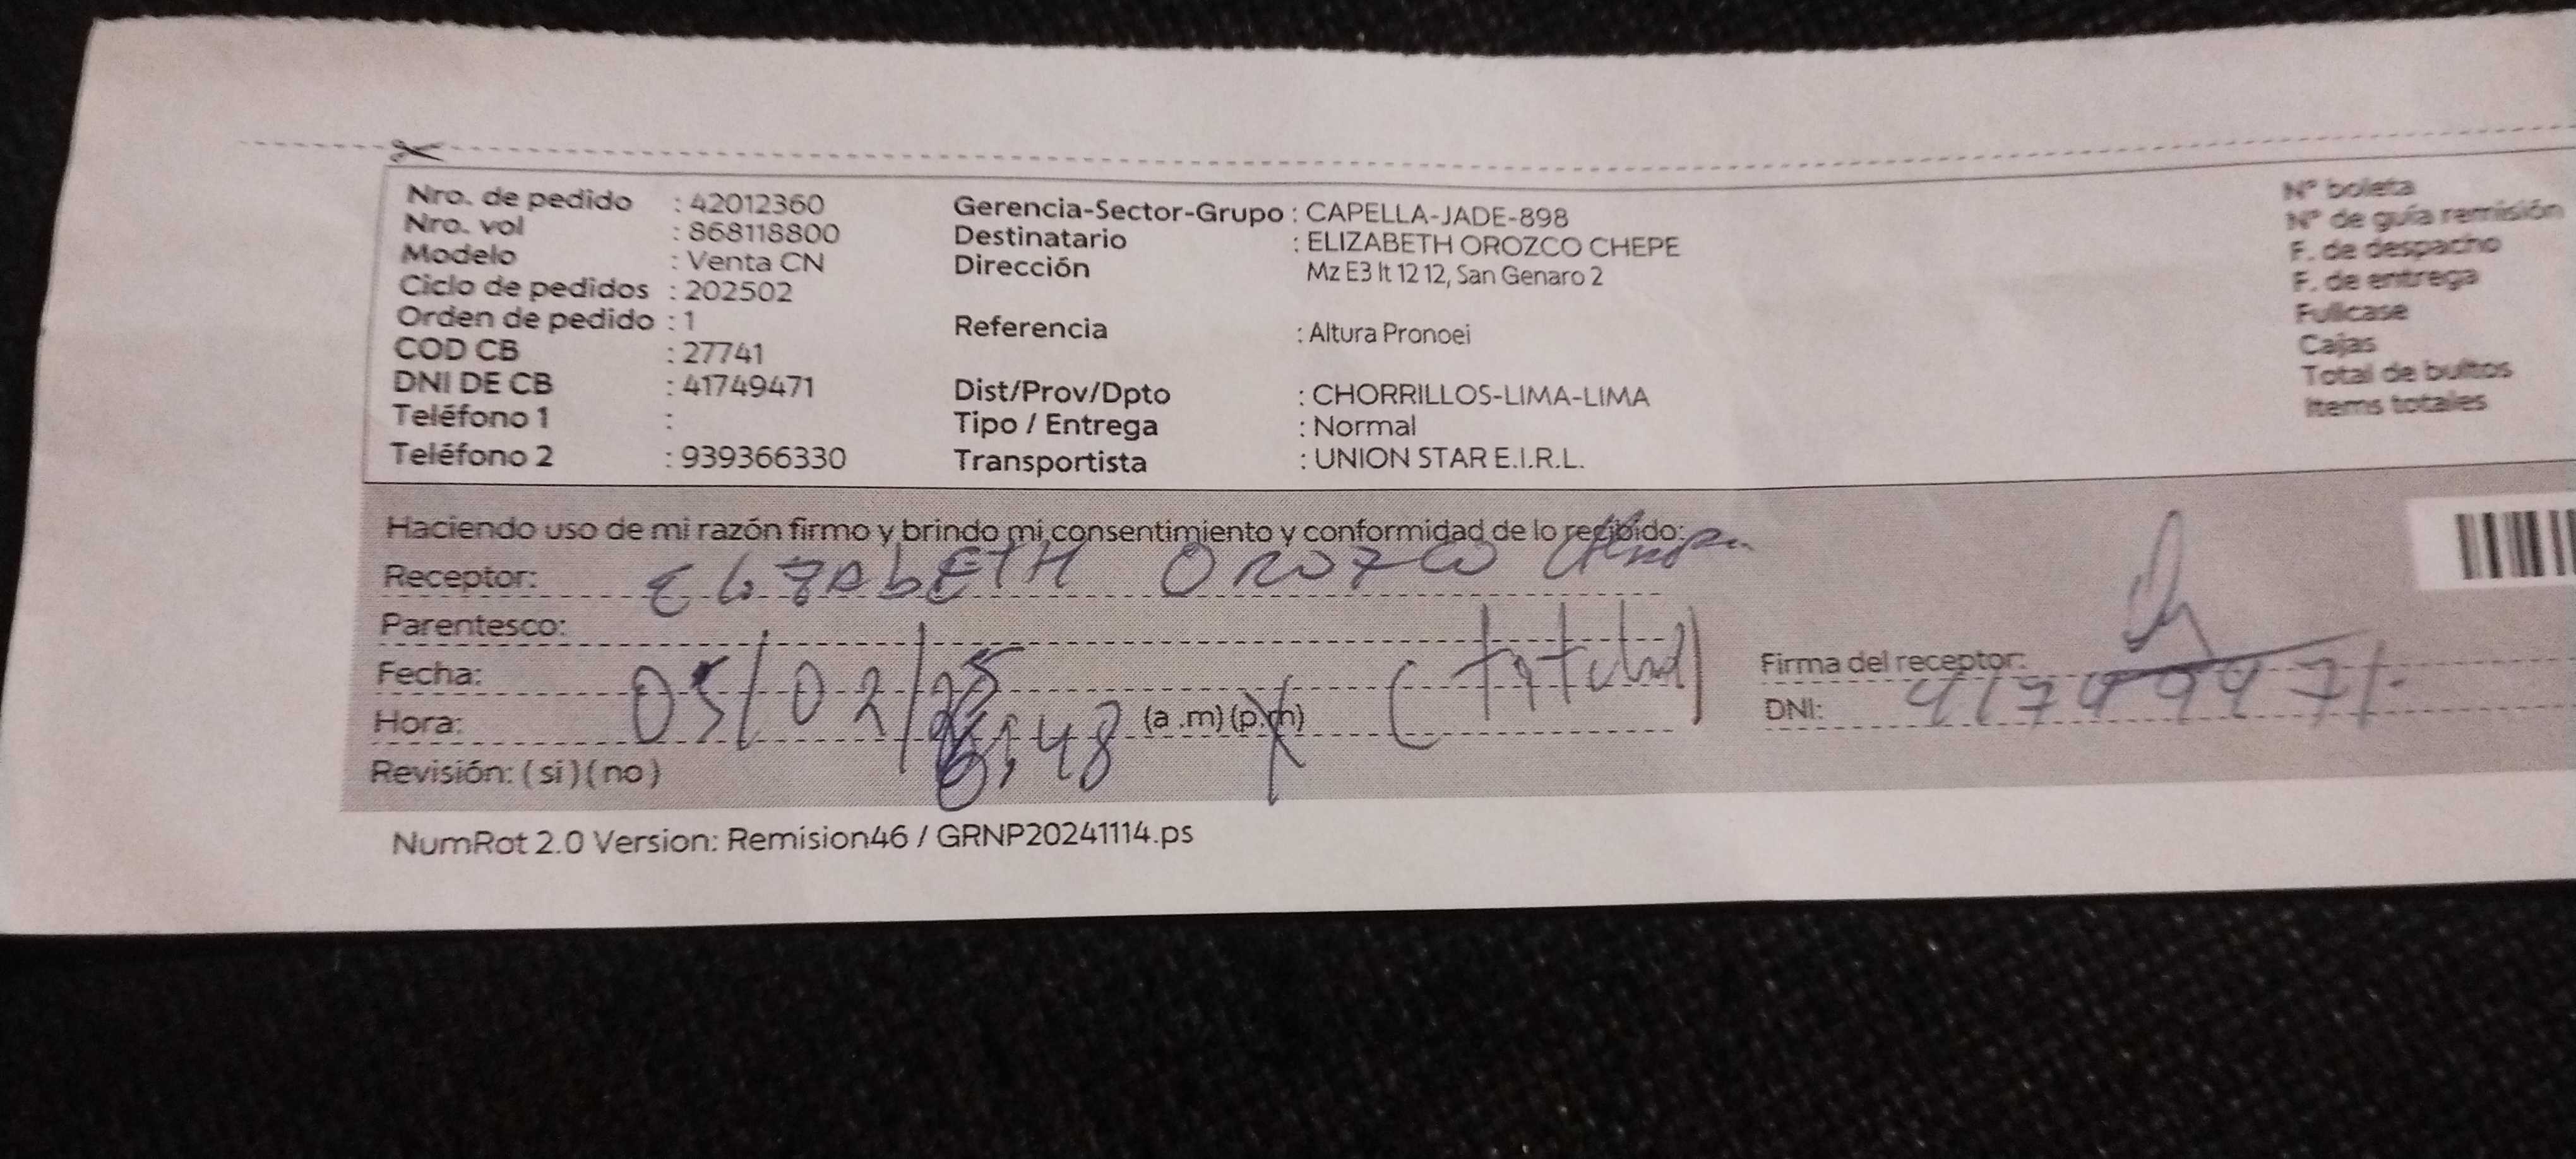 Nro. de pedido : 42012360
Nro. vol : 868118800
Modelo : Venta CN
Ciclo de pedidos : 202502
Orden de pedido : 1
COD CB : 27741
DNI DE CB : 41749471
Teléfono 1 :
Teléfono 2 : 939366330
Gerencia-Sector-Grupo : CAPELLA-JADE-898
Destinatario : ELIZABETH OROZCO CHEPE
Dirección Mz E3 lt 12 12, San Genaro 2
Referencia : Altura Pronoei
Dist/Prov/Dpto : CHORRILLOS-LIMA-LIMA
Tipo / Entrega : Normal
Transportista : UNION STAR E.I.R.L.
N° boleta
N° de guía remisión
F. de despacho
F. de entrega
Fullcase
Cajas
Total de bultos
Items totales
Haciendo uso de mi razón firmo y brindo mi consentimiento y conformidad de lo recibido:
Receptor: ELIZAbETH OROZCO
Parentesco:
Fecha: 05/02/25
Hora: 6:48 (a .m) (p.m)
Revisión: ( si ) ( no )
Firma del receptor:
DNI: 41749471
NumRot 2.0 Version: Remision46 / GRNP20241114.ps